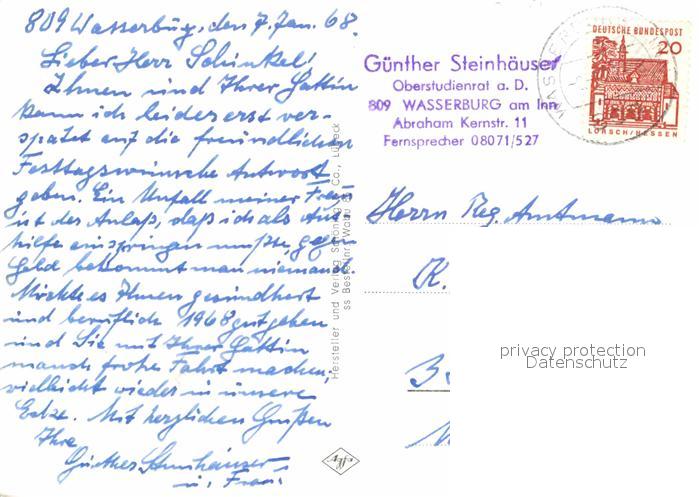 809 Wasserburg, den 7. Jan. 68.
Lieber Herr Schinkel!
Ihnen und Ihrer Gattin
kann ich leider erst ver-
spätet auf die freundlichen
Festtagswünsche Antwort
geben. Ein Unfall meiner Frau
ist der Anlaß, daß ich als Aus-
hilfe einspringen mußte, gegen
Geld bekommt man niemand.
Möchte es Ihnen gesundheitl
und beruflich 1968 gut gehen
und Sie mit Ihrer Gattin
manch frohe Fahrt machen,
vielleicht wieder in unsere
Ecke. Mit herzlichen Grüßen
Ihre
Günther Steinhäuser
u. Frau
Hersteller und Verlag Schöning & Co., Lübeck
Günther Steinhäuser
Oberstudienrat a. D.
809 WASSERBURG am Inn
Abraham Kernstr. 11
Fernsprecher 08071/527
DEUTSCHE BUNDESPOST
20
LORSCH/HESSEN
Herrn Reg. Amtmann
K.
privacy protection
Datenschutz
Agfa